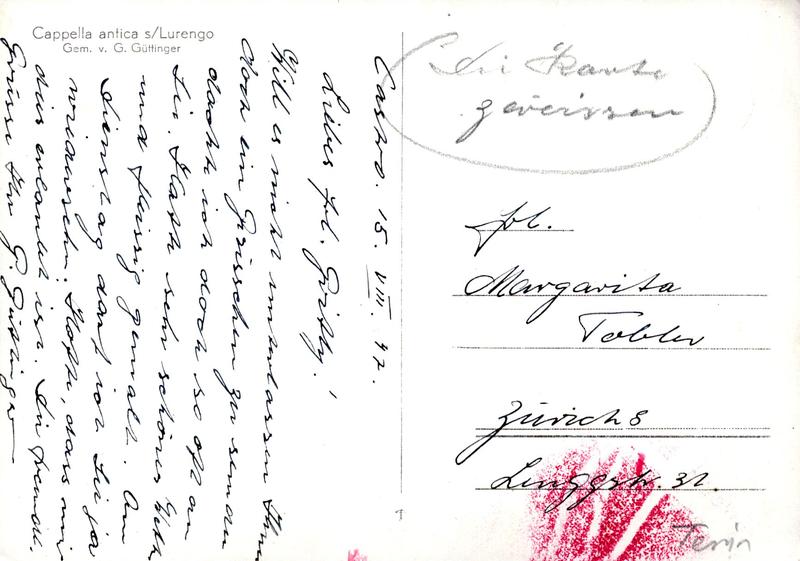 Cappella antica s/Lurengo
Gem. v. G. Güttinger
Castro. 15. VIII. 47.
Liebes Frl. Gritly!
Will es nicht unterlassen Ihnen
doch ein Grüsschen zu senden
dachte ich doch so oft an
Sie. Hatte sehr schönes Wett
und fleissig gemalt. Am
Dienstag darf ich Sie ja
wiedersehn. Hoffe, dass mir
dies erlaubt ist. Die freundl.
Grüsse Ihr G. Güttinger
Die Karte
zerreissen
Frl.
Margarita
Tobler
Zürich 8
Lenggstr. 31.
Tessin